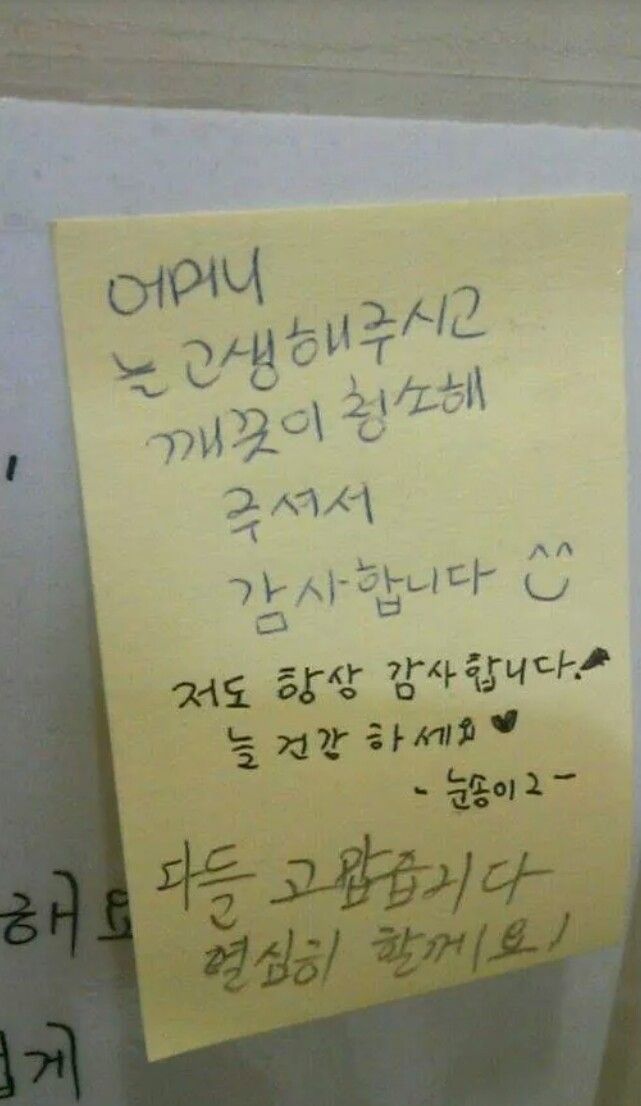 어머니
늘 고생해주시고
깨끗이 청소해
주셔서
감사합니다 ^^
저도 항상 감사합니다.
늘 건강 하세요♥
- 눈송이2 -
다들 고맙읍니다
열심히 할께요!
해요
게